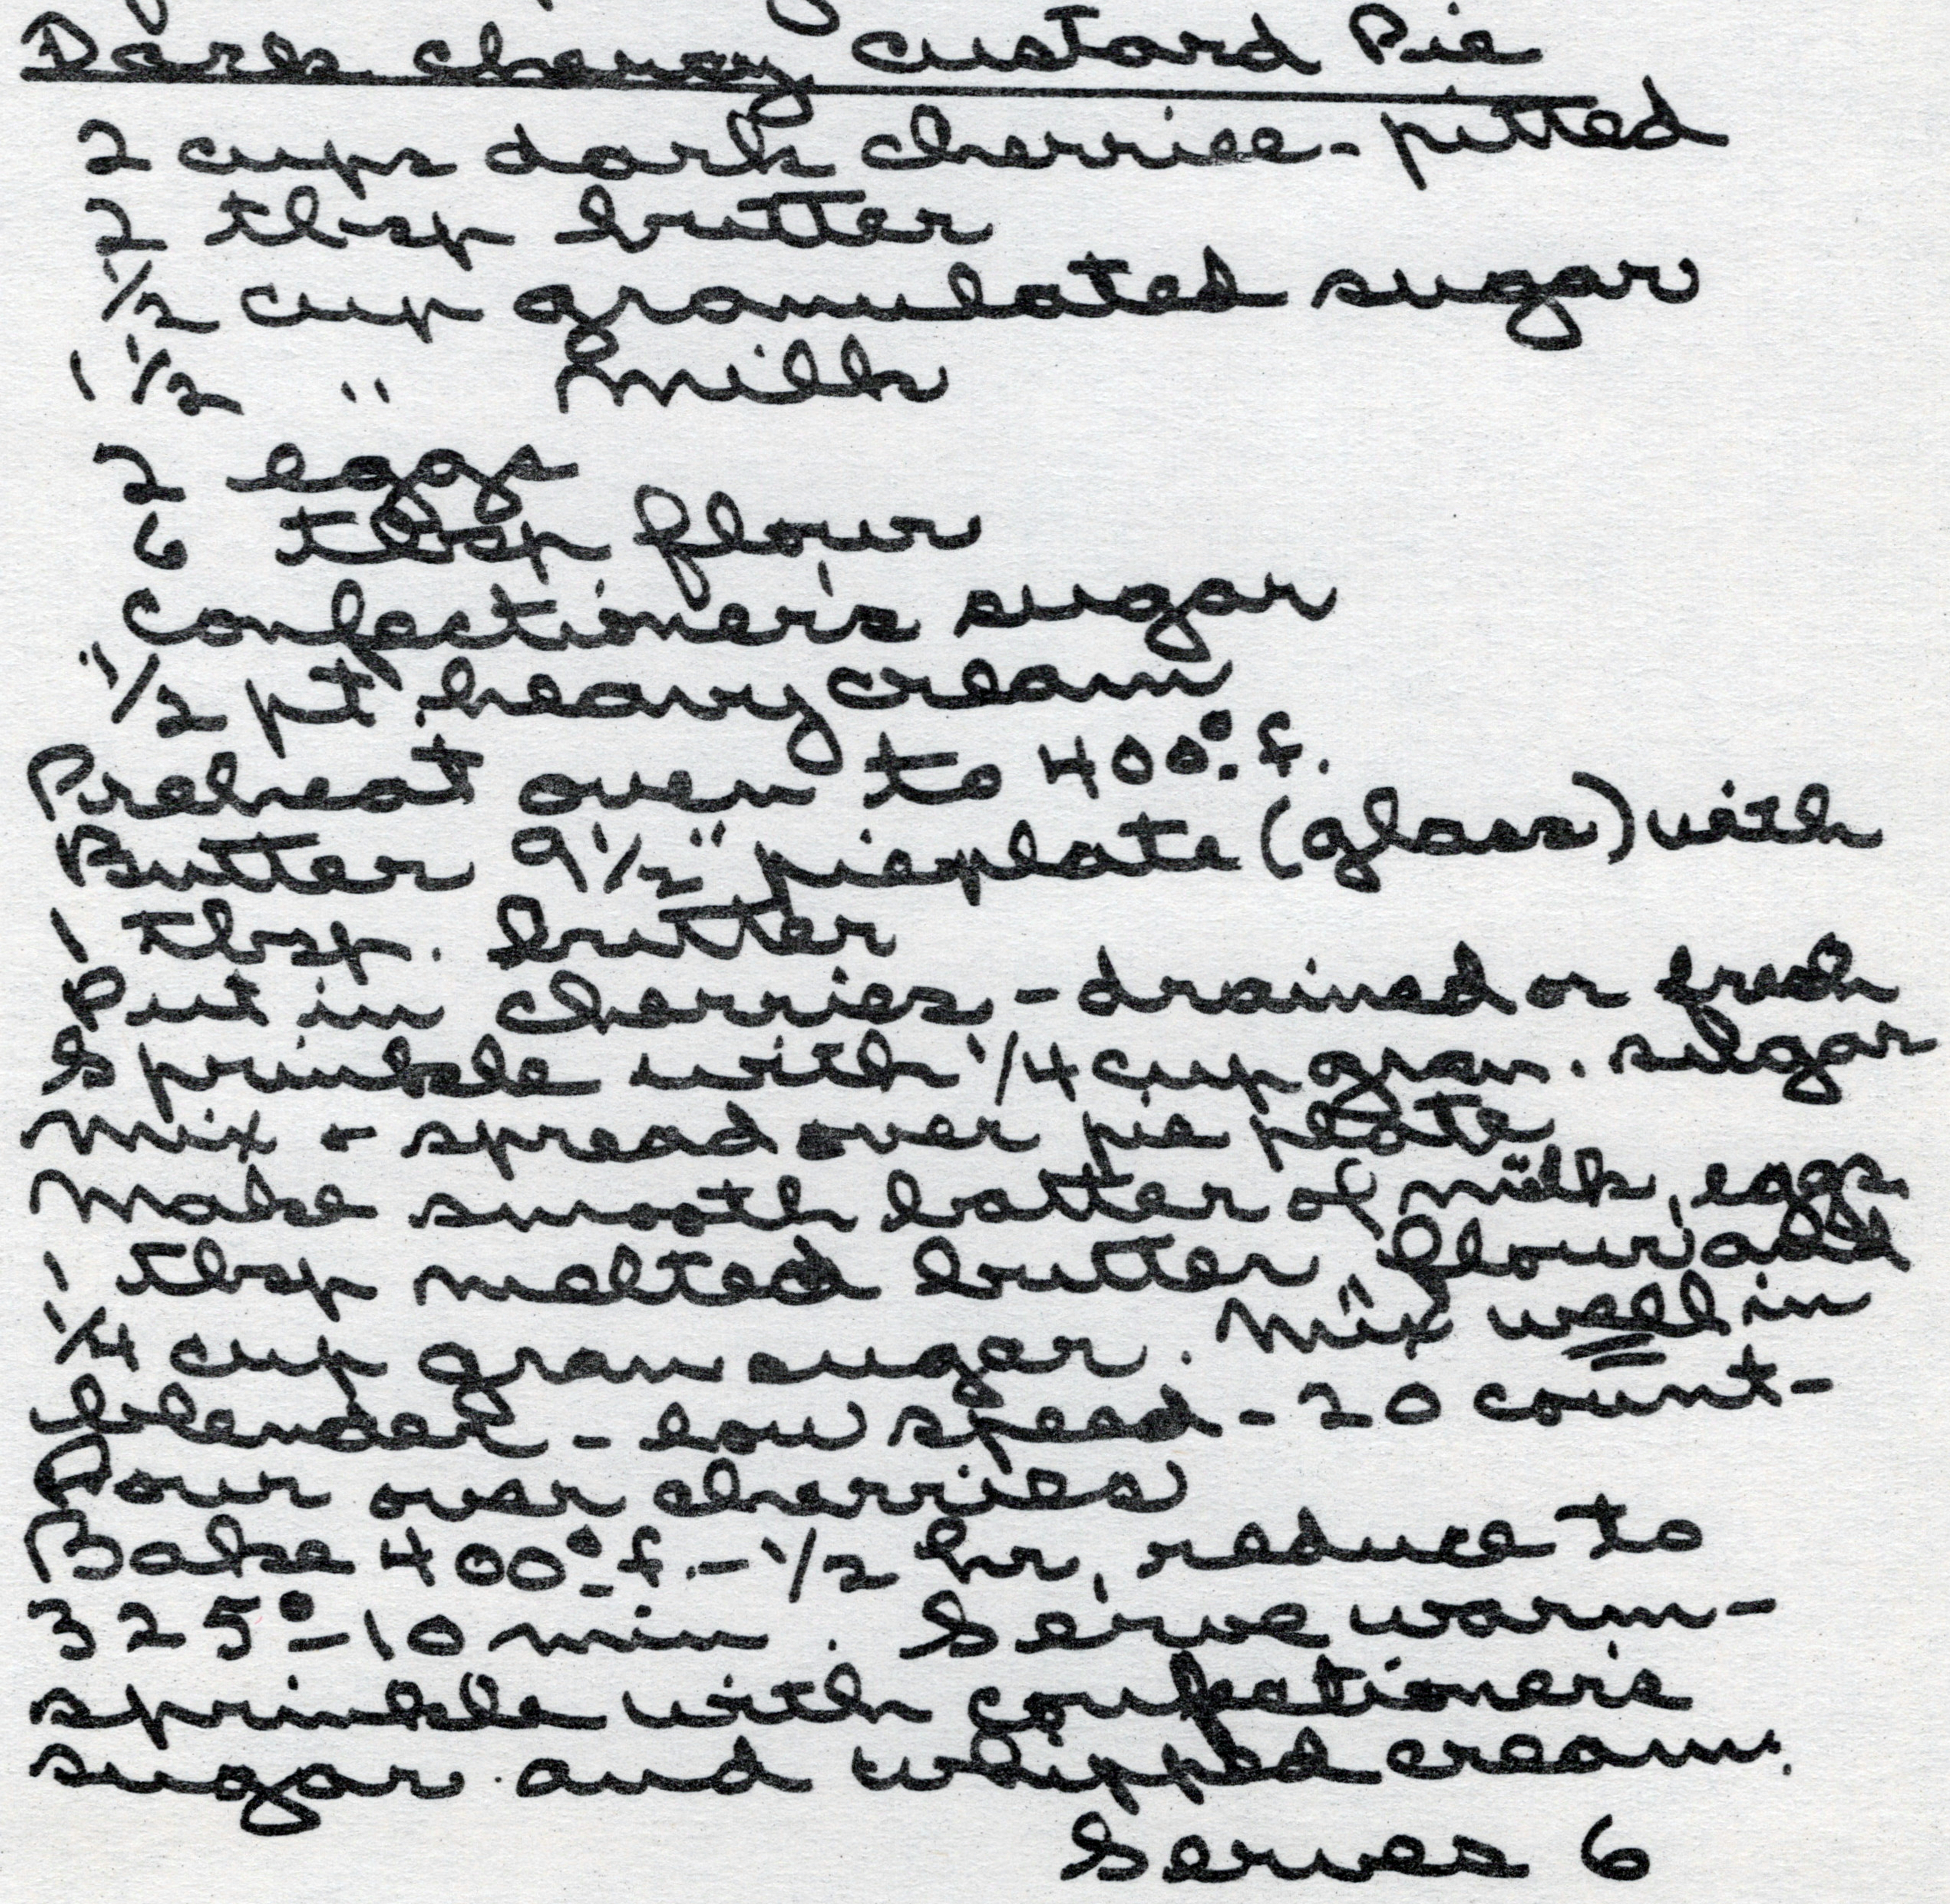 Dark cherry custard Pie
2 cups dark cherries - pitted
2 tbsp butter
1/2 cup granulated sugar
1 1/2 " milk
2 eggs
6 tbsp flour
Confectioner's sugar
1/2 pt heavy cream
Preheat oven to 400° f.
Butter 9 1/2" pieplate (glass) with
1 tbsp. butter
Put in cherries - drained or fresh
Sprinkle with 1/4 cup gran. sugar
Mix + spread over pie plate
Make smooth batter of milk, eggs
1 tbsp melted butter, flour and
1/4 cup gran sugar. Mix well in
blender - low speed - 20 count -
Pour over cherries
Bake 400° f. - 1/2 hr, reduce to
325° - 10 min. Serve warm -
sprinkle with confectioner's
sugar and whipped cream.
Serves 6